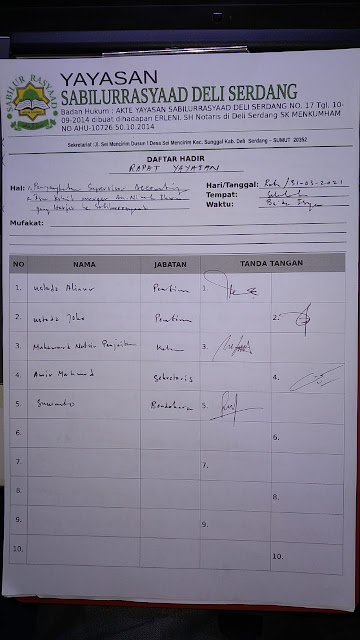 SABILUR RASYAAD
YAYASAN
SABILURRASYAAD DELI SERDANG
Badan Hukum : AKTE YAYASAN SABILURRASYAAD DELI SERDANG NO. 17 Tgl. 10-
09-2014 dibuat dihadapan ERLENI. SH Notaris di Deli Serdang SK MENKUMHAM
NO AHU-10726.50.10.2014
Sekretariat : Jl. Sei Mencirim Dusun I Desa Sei Mencirim Kec. Sunggal Kab. Deli Serdang – SUMUT 20352
DAFTAR HADIR
RAPAT YAYASAN
Hal: Supervisor Accounting
Hari/Tanggal: Rabu / 31-03-2021
Tempat:
Waktu: Ba'da Isya
Mufakat:
NO NAMA JABATAN TANDA TANGAN
1. ustadz 1.
2. ustadz Joko 2.
3. Muhammad 3.
4. Amir Mahmud Sekretaris 4.
5. Suwanto Bendahara 5.
6. 6.
7. 7.
8. 8.
9. 9.
10. 10.